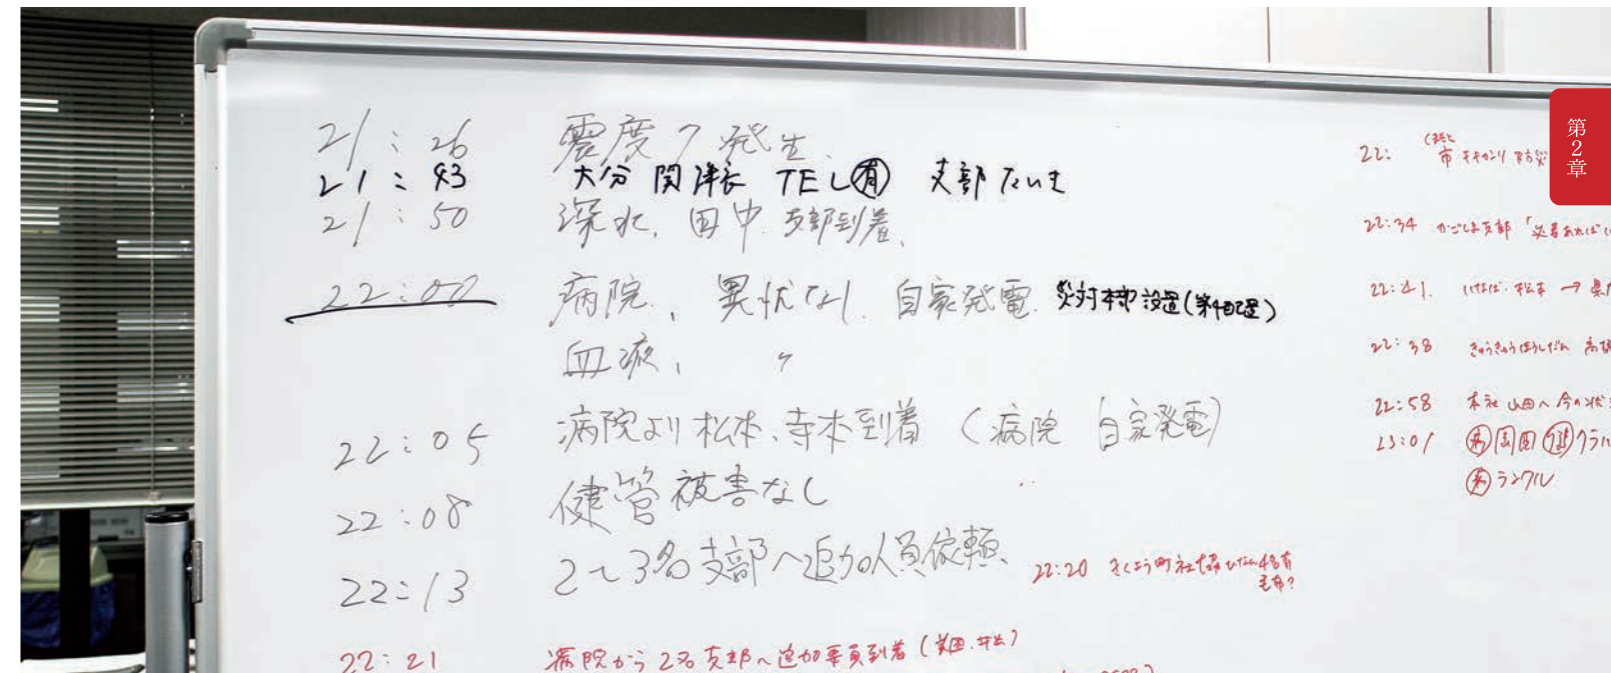 21:26 震度7発生.
21:43 大分 関津長 TEL㊒ 支部たいき
21:50 深水、田中、支部到着、
22:00 病院、異状なし、自家発電 災対本部設置(第4配置)
血液、 〃
22:05 病院より松本、寺本到着 (病院 自家発電)
22:08 健管被害なし
22:13 2〜3名支部へ追加人員依頼、
22:20 きくよう町社協 4名有
毛布?
22:21 病院から2名支部へ追加要員到着
22: 市 防災
22:34 かごしま支部「災害あれば
22:41. いなば・松本 →
22:38 きゅうきゅうほうしだん
22:58 本社 山田へ 今の状
23:01
第2章